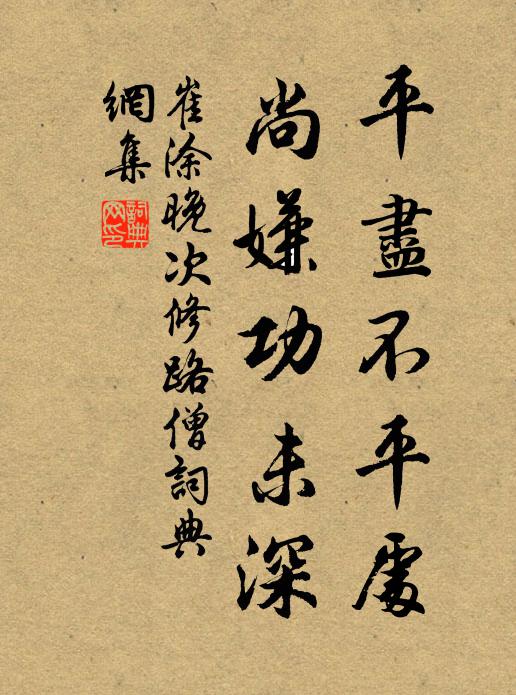 平盡不平處
尚嫌功未深
崔涂晚次修路僧詞典
網集
詞典
网印